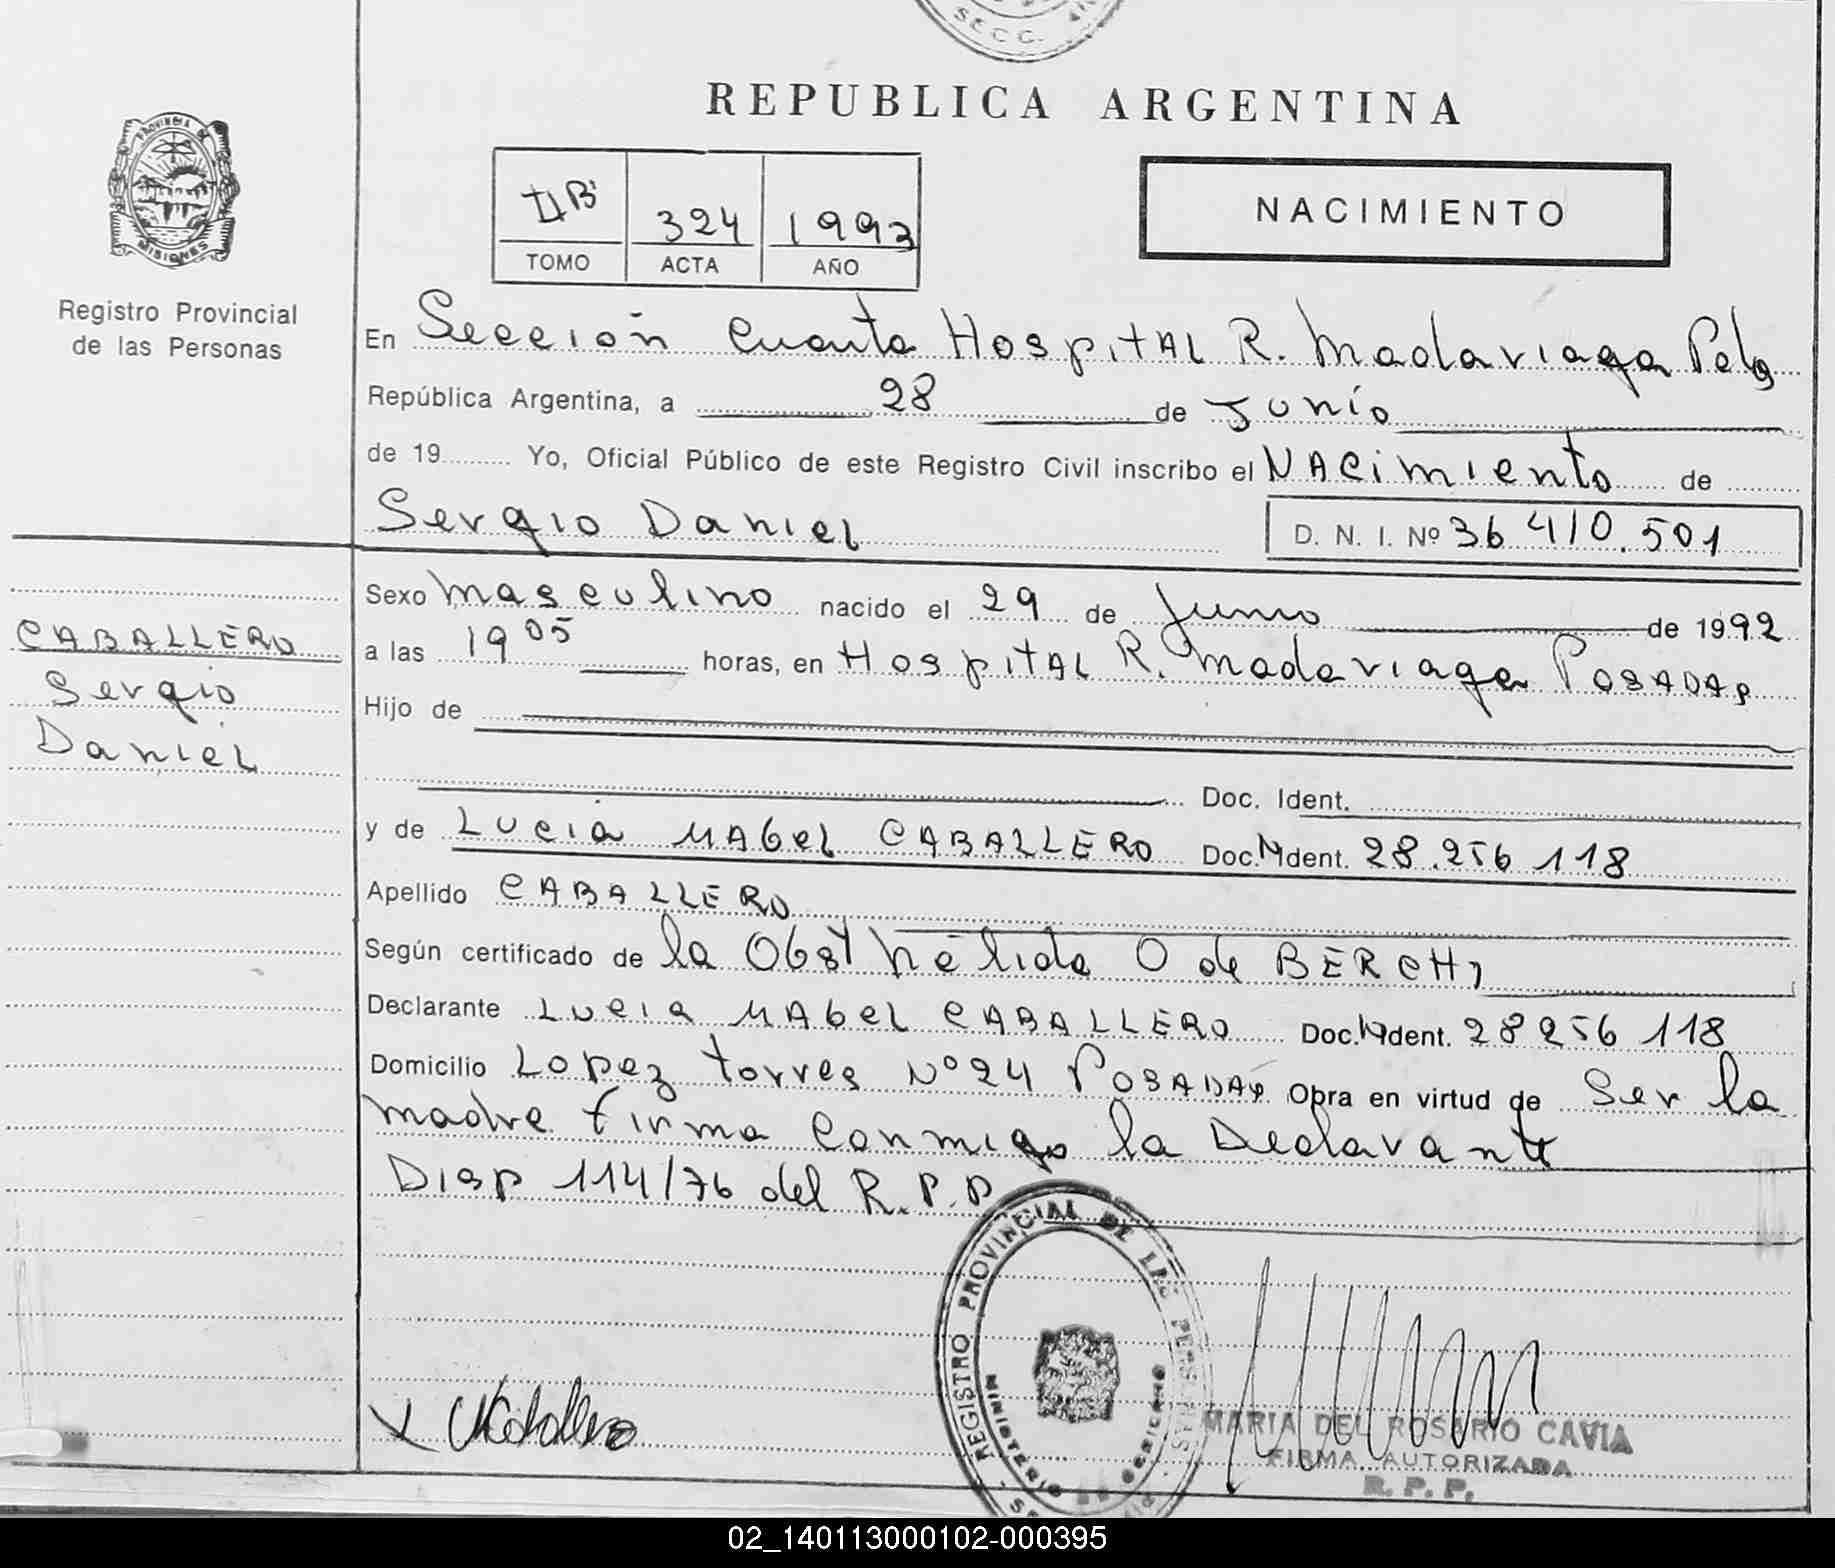 SECC.
REPUBLICA ARGENTINA
PROVINCIA DE
MISIONES
Registro Provincial
de las Personas
II B 324 1993
TOMO ACTA AÑO
NACIMIENTO
En Sección Cuarta Hospital R. Madariaga Pdas
República Argentina, a 28 de Junio
de 19 Yo, Oficial Público de este Registro Civil inscribo el Nacimiento de
Sergio Daniel D. N. I. Nº 36 410.501
Sexo masculino nacido el 29 de Junio de 1992
CABALLERO
Sergio
Daniel
a las 19 05 horas, en Hospital R. Madariaga Posadas
Hijo de
Doc. Ident.
y de Lucia Mabel CABALLERO Doc. Ident. 28.256 118
Apellido CABALLERO
Según certificado de la Obst Nélida O de BERCHI
Declarante Lucia Mabel CABALLERO Doc. Ident. 28 256 118
Domicilio Lopez Torres Nº 24 Posadas Obra en virtud de Ser la
madre firma conmigo la Declarante
Disp 114/76 del R.P.P
REGISTRO PROVINCIAL DE LAS PERSONAS
MINISTERIO DE GOBIERNO
MARIA DEL ROSARIO CAVIA
FIRMA AUTORIZADA
R. P. P.
02_140113000102-000395